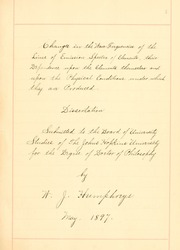 Changes in the Wave Frequencies of the
Lines of Emission Spectra of Elements, their
Dependence upon the Elements themselves and
upon the Physical Conditions under which
they are Produced.
Dissertation
Submitted to the Board of University
Studies of The Johns Hopkins University
for the Degree of Doctor of Philosophy
by
W. J. Humphreys
May 1897.